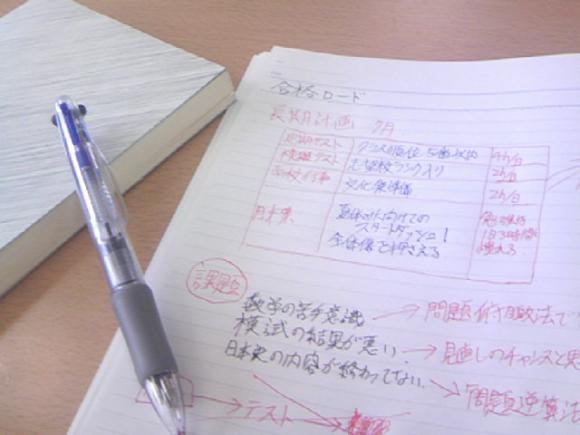 合格ロード
長期計画 7月
定期テスト クラス順位 5番以内 4h/日
模擬テスト 志望校ランク入り 2h/日
高校行事 文化祭準備 2h/日
日本史
夏休みに向けての
スタートダッシュ!
全体像を押さえる
1日3時間
増える
課題
数学の苦手意識 → 問題 法で
模試の結果が悪い. → 見直しのチャンスと思
日本史の内容が終わってない. → 「問題逆算法
→ テスト →